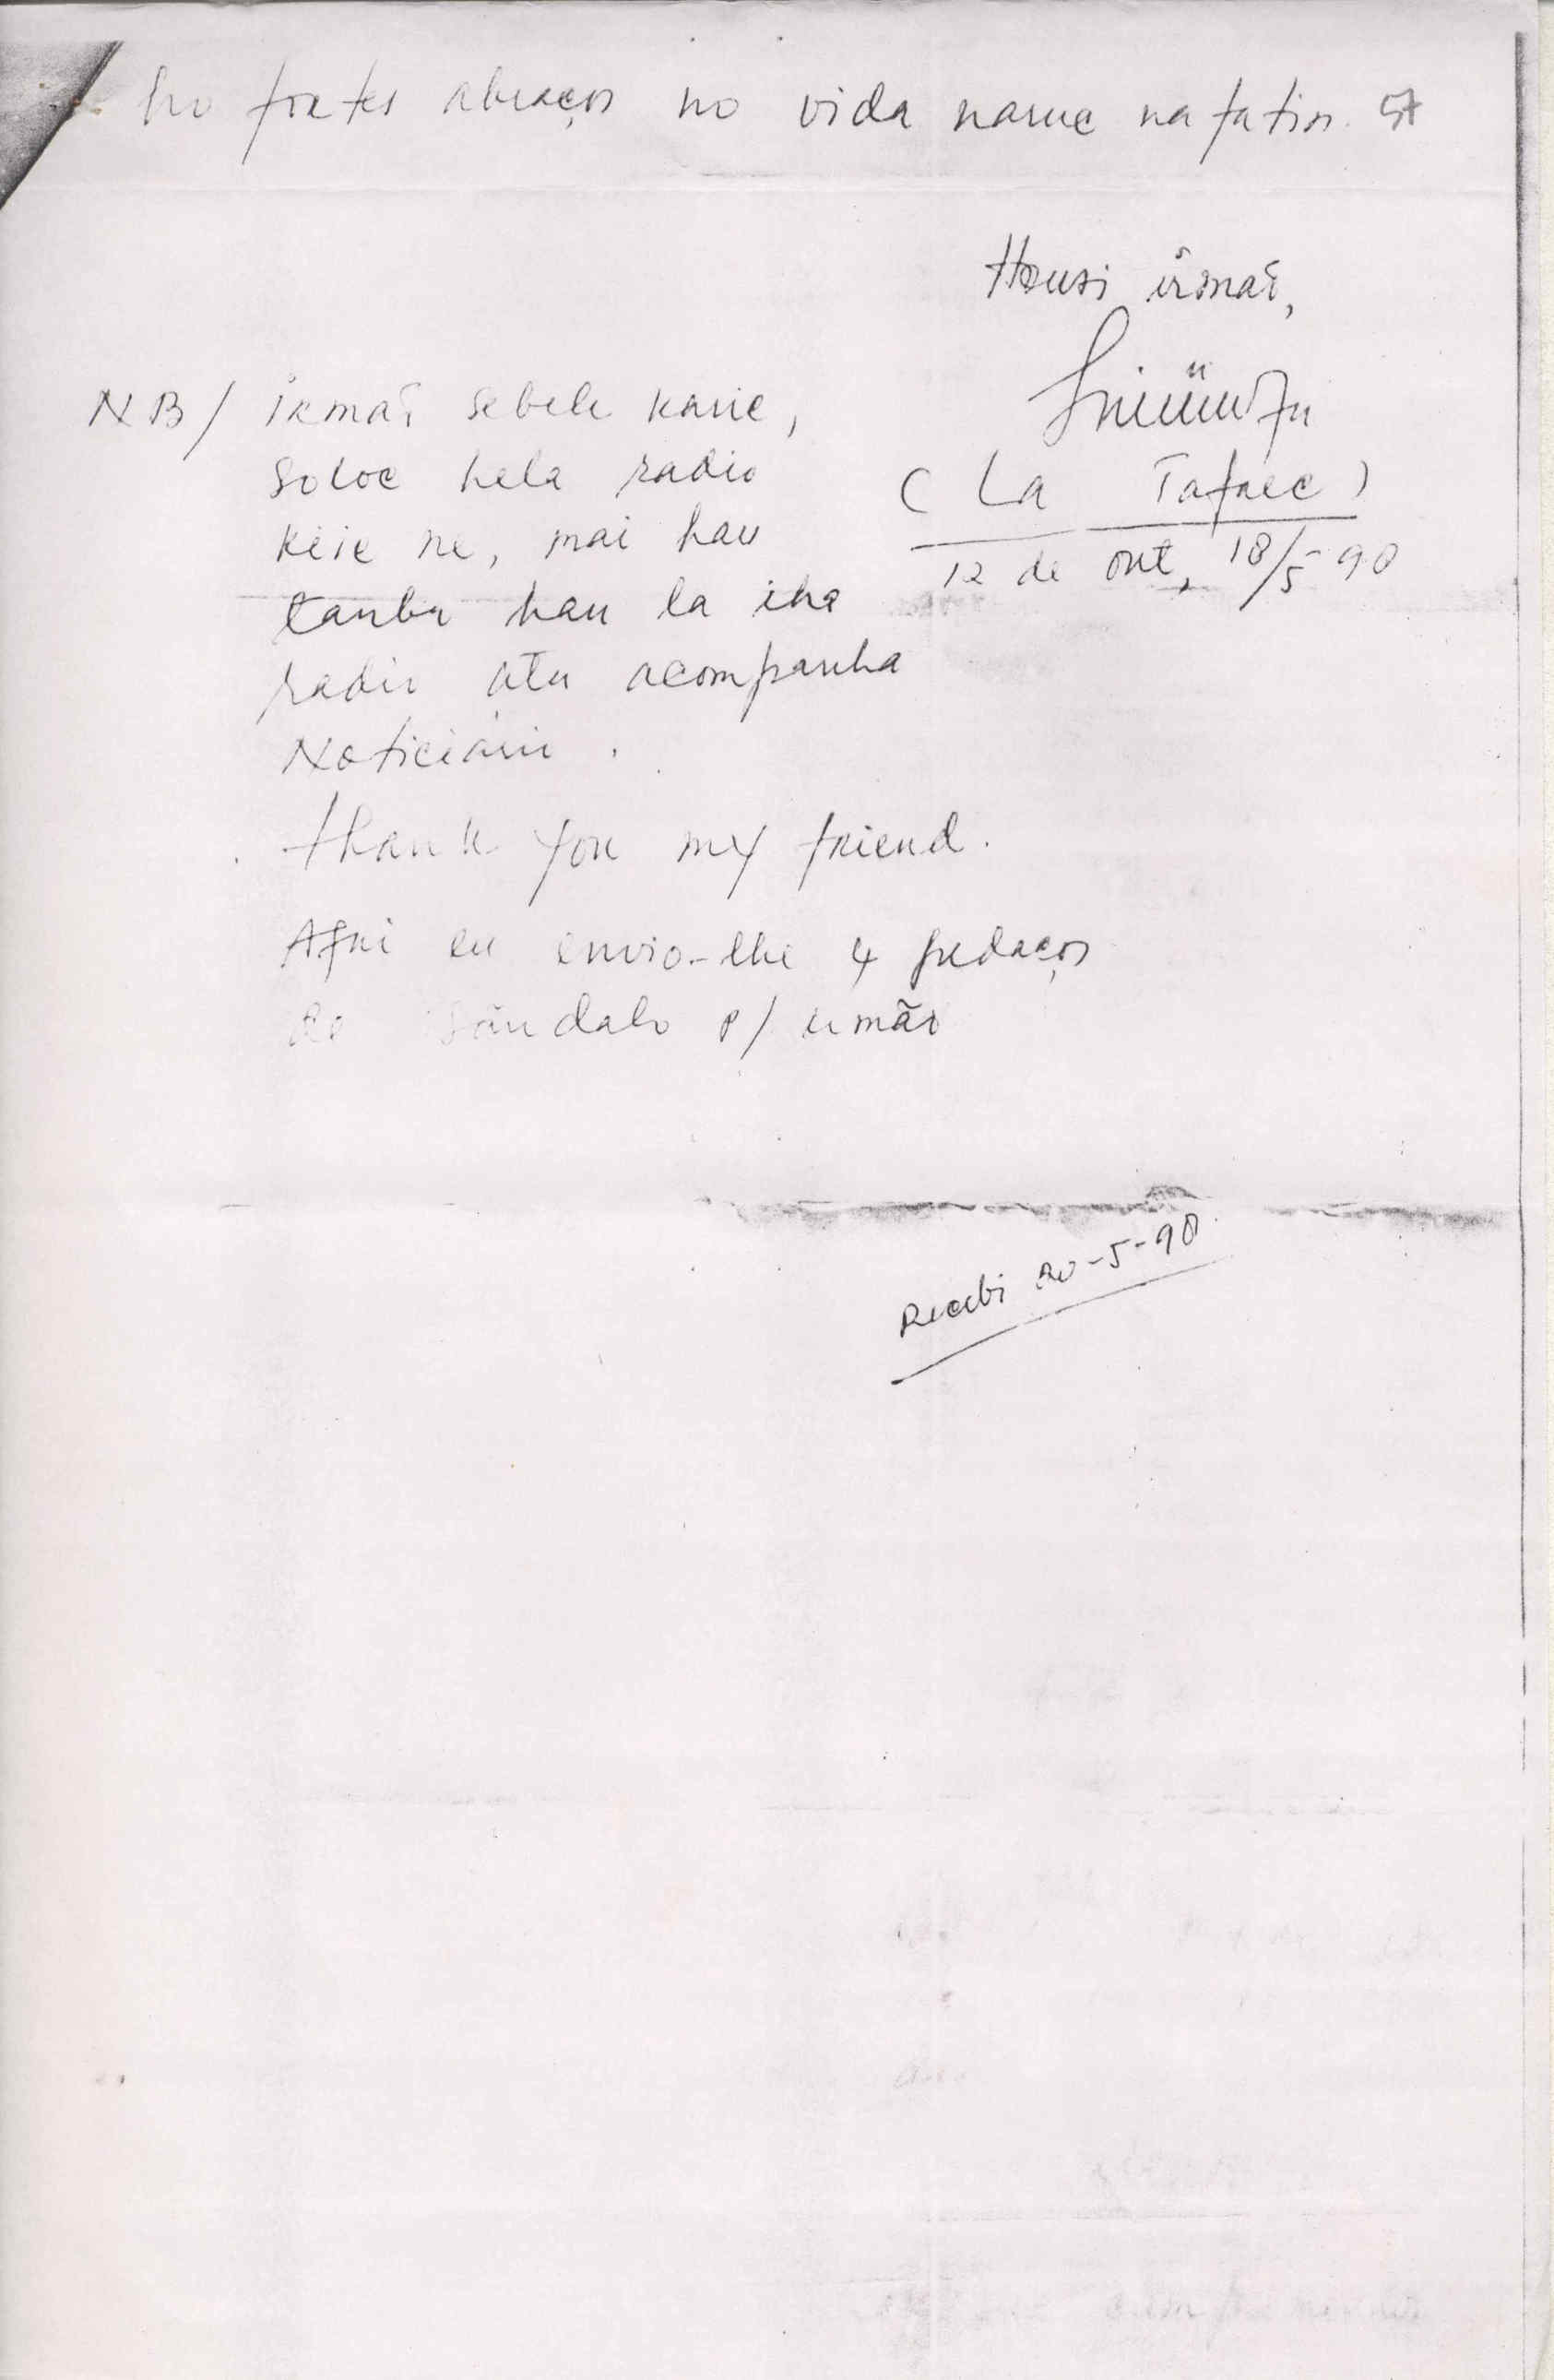 ho fortes abraços no vida naruc nafatin.
Housi irmão,
(La Tafaec)
12 de out, 18/5-90
NB/ Irmão sebele karic,
soloc hela radio
kiic ne, mai hau
tanba hau la iha
radio atu acompanha
Noticiário.
thank you my friend.
Aqui eu envio-lhe 4 pedaços
de sândalo p/ irmão
Recebi 20-5-90